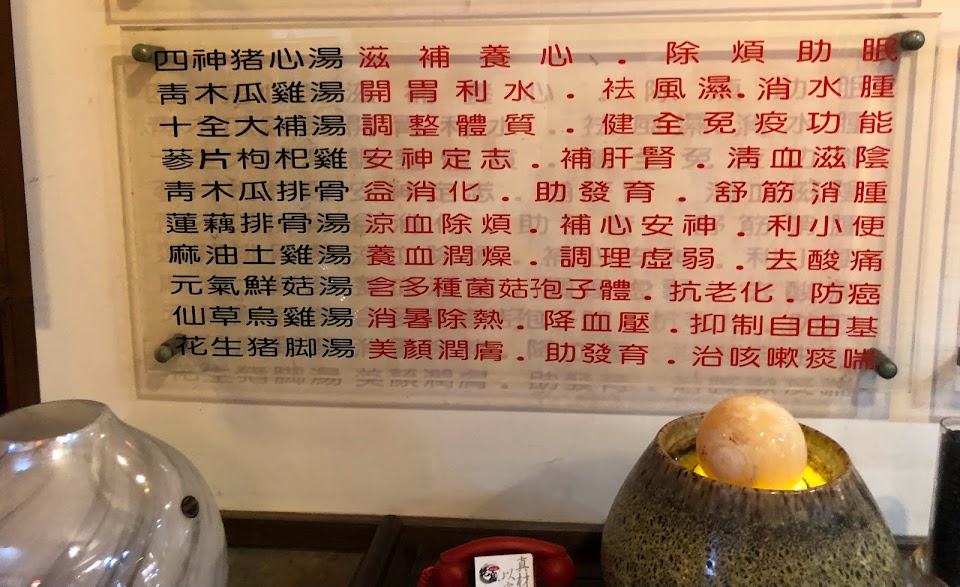 四神猪心湯 滋補養心.除煩助眠
青木瓜雞湯 開胃利水.祛風濕.消水腫
十全大補湯 調整體質.健全免疫功能
蔘片枸杞雞 安神定志.補肝腎.清血滋陰
青木瓜排骨 益消化.助發育.舒筋消腫
蓮藕排骨湯 涼血除煩.補心安神.利小便
麻油土雞湯 養血潤燥.調理虛弱.去酸痛
元氣鮮菇湯 含多種菌菇孢子體.抗老化.防癌
仙草烏雞湯 消暑除熱.降血壓.抑制自由基
花生猪脚湯 美顏潤膚.助發育.治咳嗽痰喘
真材